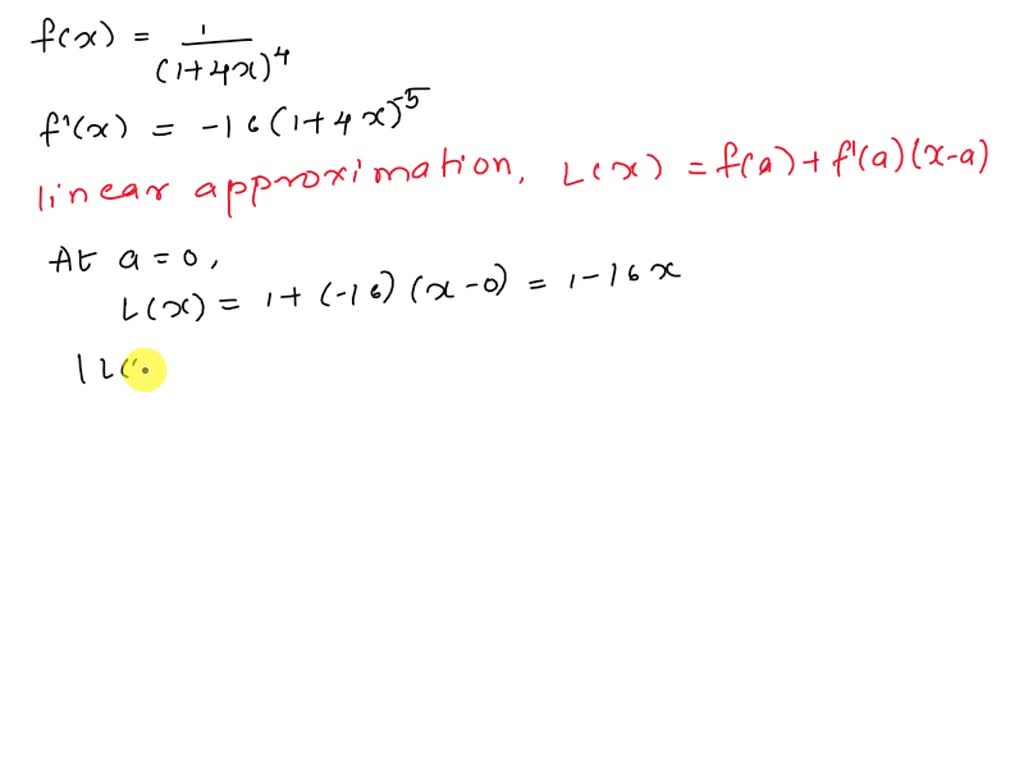 f(x) = 1/(1+4x)^4
f'(x) = -16(1+4x)^-5
linear approximation, L(x) = f(a) + f'(a)(x-a)
At a = 0,
L(x) = 1 + (-16)(x-0) = 1 - 16x
|L(